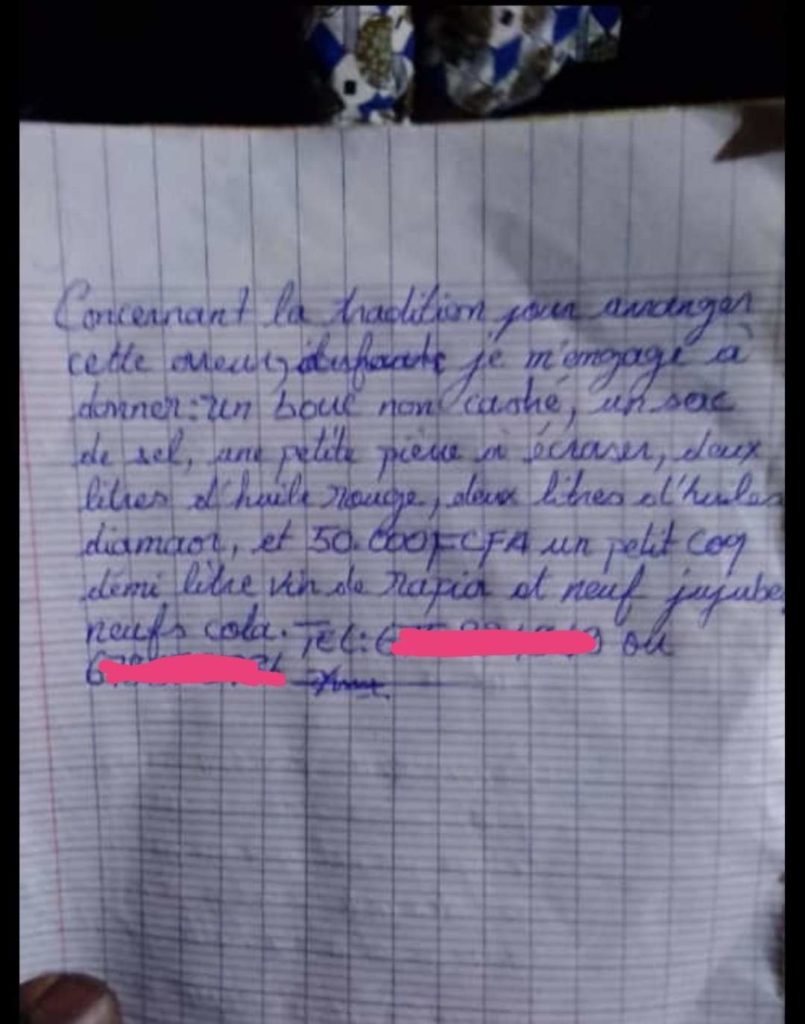 Concernant la tradition pour arranger
cette je m'engage à
donner: un bouc non castré, un sac
de sel, une petite pierre à écraser, deux
litres d'huile rouge, deux litres d'huiles
diamaor, et 50.000FCFA un petit coq
demi litre vin de raphia et neuf jujube
neufs cola. Tel: 6 ou
67